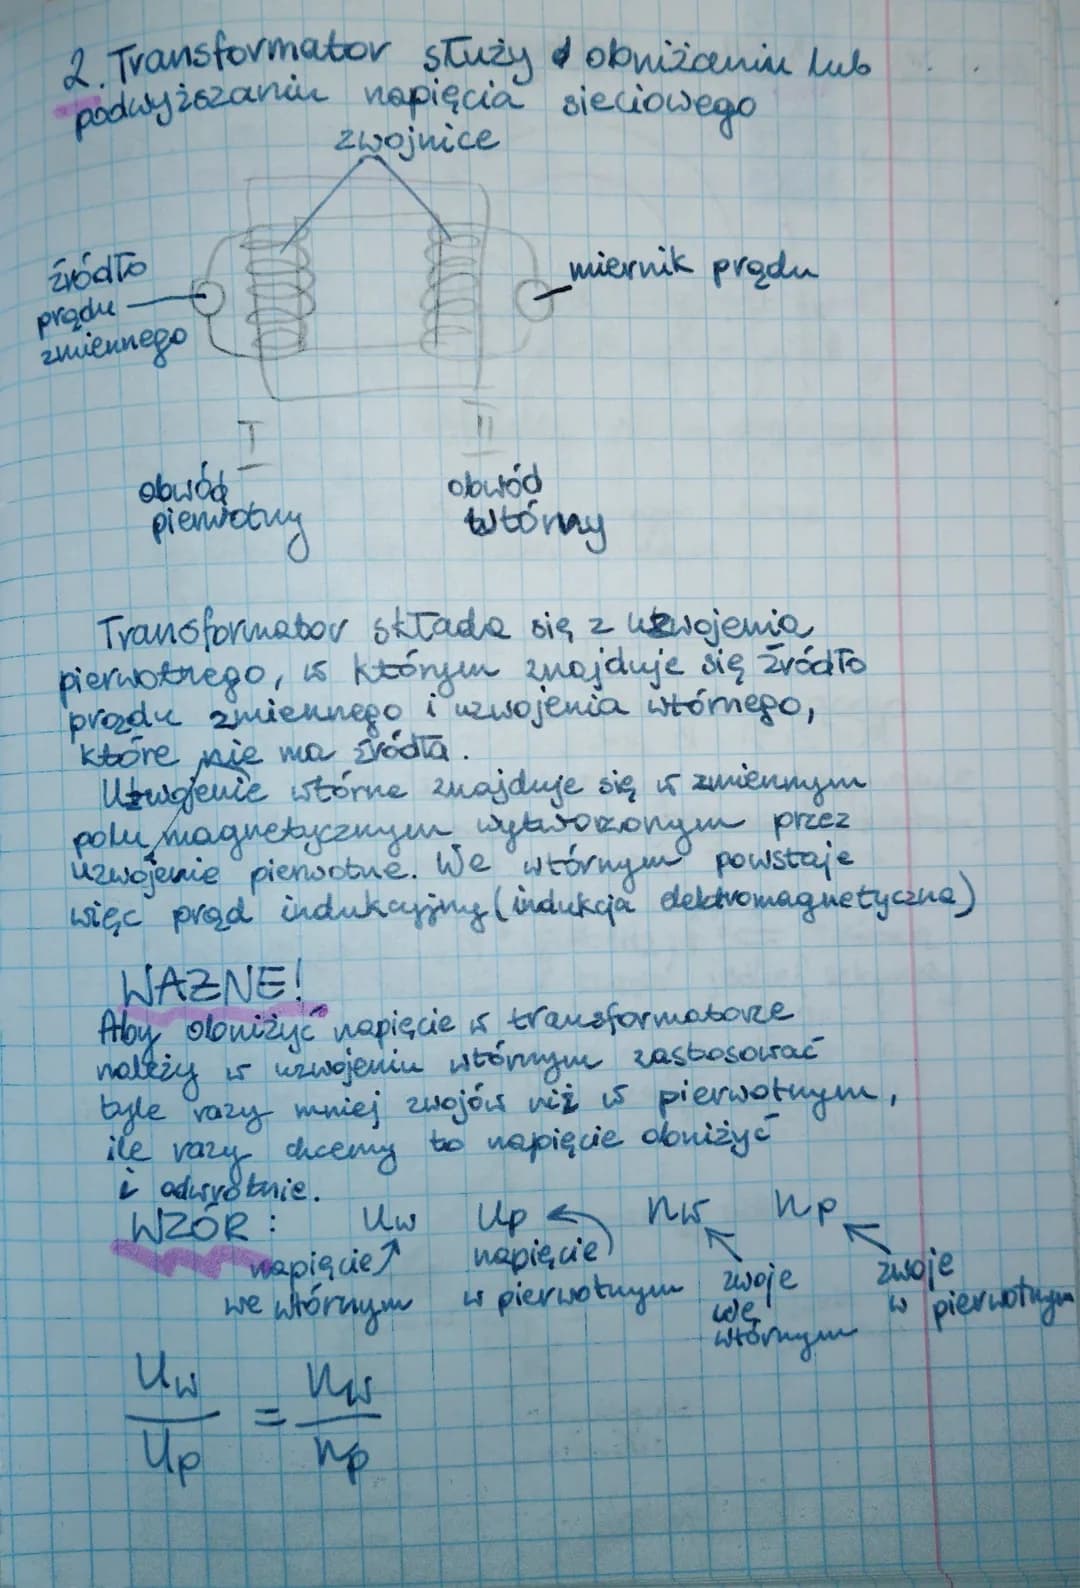 2. Transformator służy obniżaniu lub
podwyższaniu napięcia sieciowego
zwojnice
źródło
prądu
zmiennego
miernik prądu
I
II
obwód
pierwotny
obwód
wtórny
Transformator składa się z uzwojenia
pierwotnego, w którym znajduje się źródło
prądu zmiennego i uzwojenia wtórnego,
które nie ma źródła.
Uzwojenie wtórne znajduje się w zmiennym
polu magnetycznym wytworzonym przez
uzwojenie pierwotne. We wtórnym powstaje
więc prąd indukcyjny (indukcja elektromagnetyczna)
WAŻNE!
Aby obniżyć napięcie w transformatorze
należy w uzwojeniu wtórnym zastosować
tyle razy mniej zwojów niż w pierwotnym,
ile razy chcemy to napięcie obniżyć
i odwrotnie.
WZÓR: Uw Up nw np
napięcie
we wtórnym
napięcie
w pierwotnym
zwoje
we
wtórnym
zwoje
w pierwotnym
Uw/Up = nw/np